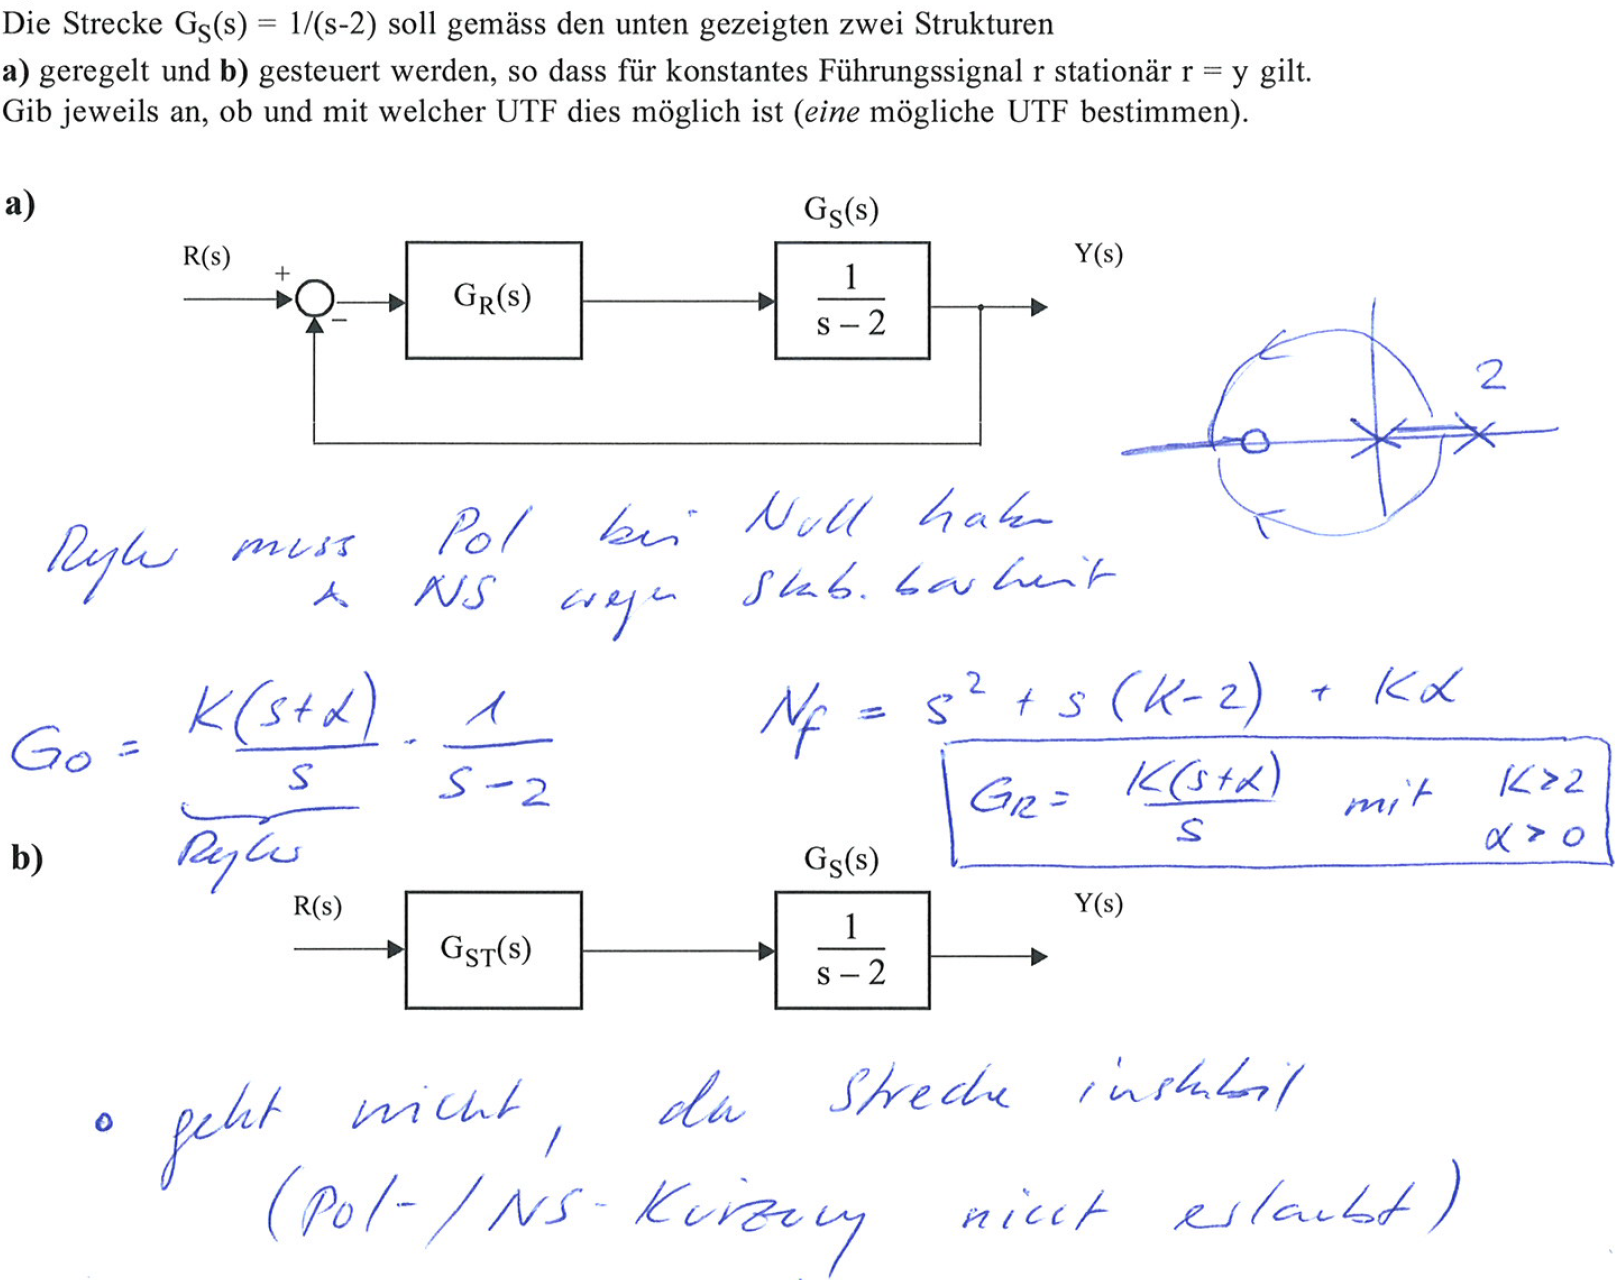 Die Strecke G_S(s) = 1/(s-2) soll gemäss den unten gezeigten zwei Strukturen
a) geregelt und b) gesteuert werden, so dass für konstantes Führungssignal r stationär r = y gilt.
Gib jeweils an, ob und mit welcher UTF dies möglich ist (eine mögliche UTF bestimmen).
a)
G_S(s)
R(s) + − G_R(s) 1/(s − 2) Y(s)
2
Regler muss Pol bei Null haben
& NS wegen Stab.barkeit
G_0 = K(s+α)/s · 1/(s-2)
Regler
N_f = s² + s(K-2) + Kα
G_R = K(s+α)/s mit K>2
α>0
b)
G_S(s)
R(s) G_ST(s) 1/(s − 2) Y(s)
• geht nicht, da Strecke instabil
(Pol-/NS-Kürzung nicht erlaubt)